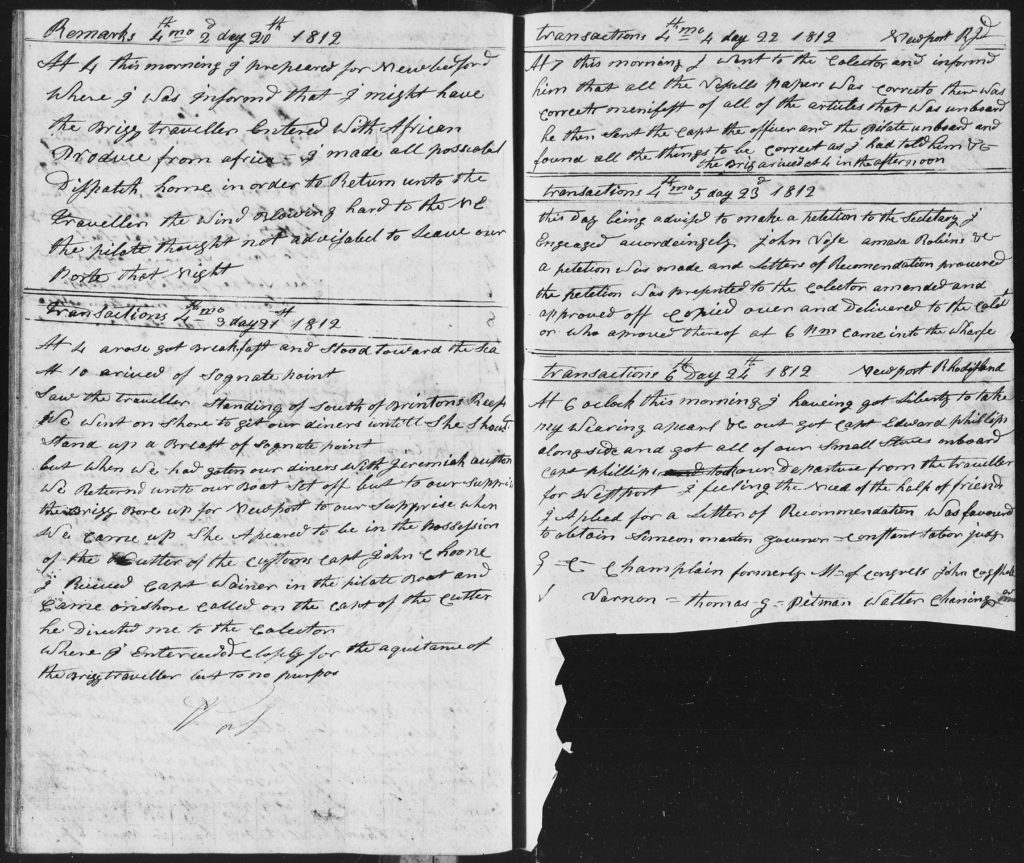 Remarks 4th mo 2d day 20th 1812
At 4 this morning I prepeared for Newbedford
Where I Was Informd that I might have
the Brigg traveller Entered With African
Produce from africa I made all possiabel
Dispatch home in order to Return unto the
Traveller the Wind Blowing hard to the NE
the pilate thought not advisabel to Leave our
Porte that Night
transactions 4th mo 3 day 21st 1812
At 4 arose got Breakfast and Stood toward the Sea
At 10 arived of Sognate point
Saw the traveller Standing of South of Brintons Reef
We Went on Shore to git our diners untill She Should
Stand up a Breast of Sognate point
but When We had goten our diners With Jeremiah austen
We Returnd unto our Boat Set off but to our Supprise
the Brigg Bore up for Newport to our Supprise when
We Came up She Apeared to be in the Possession
of the Cutter of the Customs Capt John Choone
I Reived Capt Wainer in the pilate Boat and
Came onshore Called on the Capt of the Cutter
he Directed me to the Colector
Where I Enterced Closely for the aquitance of
the Brigg traveller but to no purpos
transactions 4th mo 4 day 22 1812 Newport RId
At 7 this morning I Went to the Colector and informd
him that all the Vessells papers Was correcto there Was
correct menifest of all of the articles that Was unboard
he then Sent the Capt the officer and the Pilate unboard and
found all the things to be Correct as I had told him &c
the Brig arived at 4 in the afternoon
transactions 4th mo 5 day 23d 1812
this Day being advised to make a petetion to the Secretary I
Engeaged acordeingely John Vose amasa Robins &c
a petetion Was made and Letters of Recomendation procured
the petetion Was presented to the Colector amended and
approved off Copied over and Delivered to the Colect
or who aproved thereof at 6 PM Came into the Wharfe
transactions 6th Day 24th 1812 Newport Rhodisland
At 6 oclock this morning I haveing got Liberty to take
my Wearing aparel &c out got Capt Edward phillips
along side and got all of our Small Stores onboard
Capt phillips our Departure from the traveller
for Westport I feeling the Need of the help of friends
I Aplied for a Letter of Recommendation Was favoured
to obtain Simeon marten govenor = Constant tabor judg
G = C = Champlain formerly M = of Congress John Coggshall
Varnon = thomas G = Pitman Walter Chaning